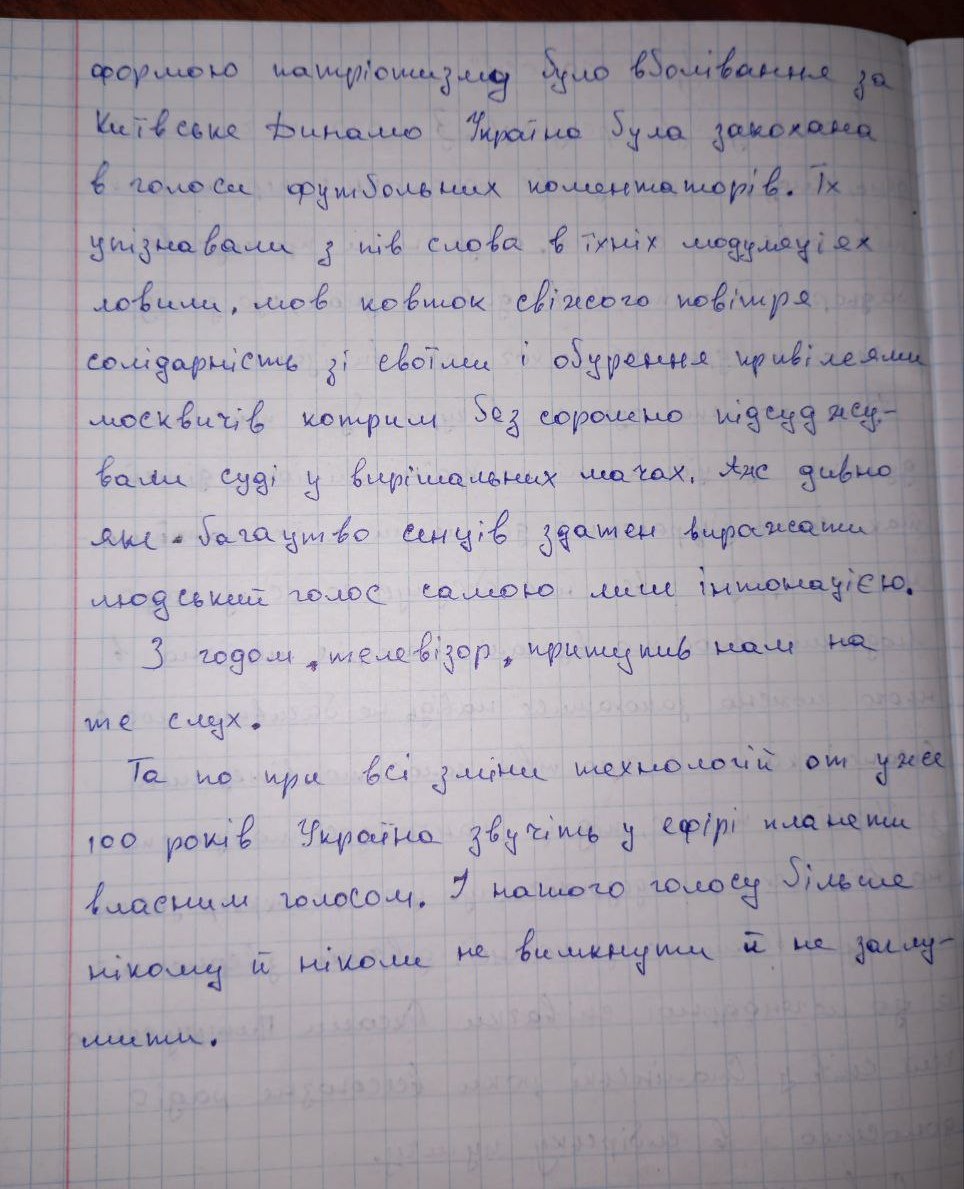 формою патріотизму було вболівання за
Київське Динамо Україна була закохана
в голоси футбольних коментаторів. Їх
упізнавали з пів слова в їхніх модуляціях
ловили, мов ковток свіжого повітря
солідарність зі своїми і обурення привілеями
москвичів котрим без соромно підсуджу-
вали суді у вирішальних мачах. Аж дивно
яке багаутво сенців здатен виражати
людський голос самою лиш інтонацією.
З годом, телевізор, притупив нам на
те слух.
Та по при всі зміни технологій от уже
100 років Україна звучіть у ефірі планети
власним голосом. І нашого голосу більше
нікому й ніколи не вимкнути й не заглу-
шити.